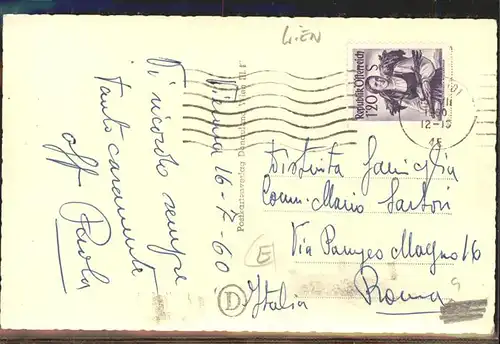 WIEN
Vienna 16-7-60
Ti ricordo sempre
tanto caramente
aff Paola
Postkartenverlag Wien III.
Republik Österreich
1'20 S
12-
Distinta Famiglia
Comm. Mario Sartori
Via Panfeo Magno 16
Roma 9
Italia
E
D